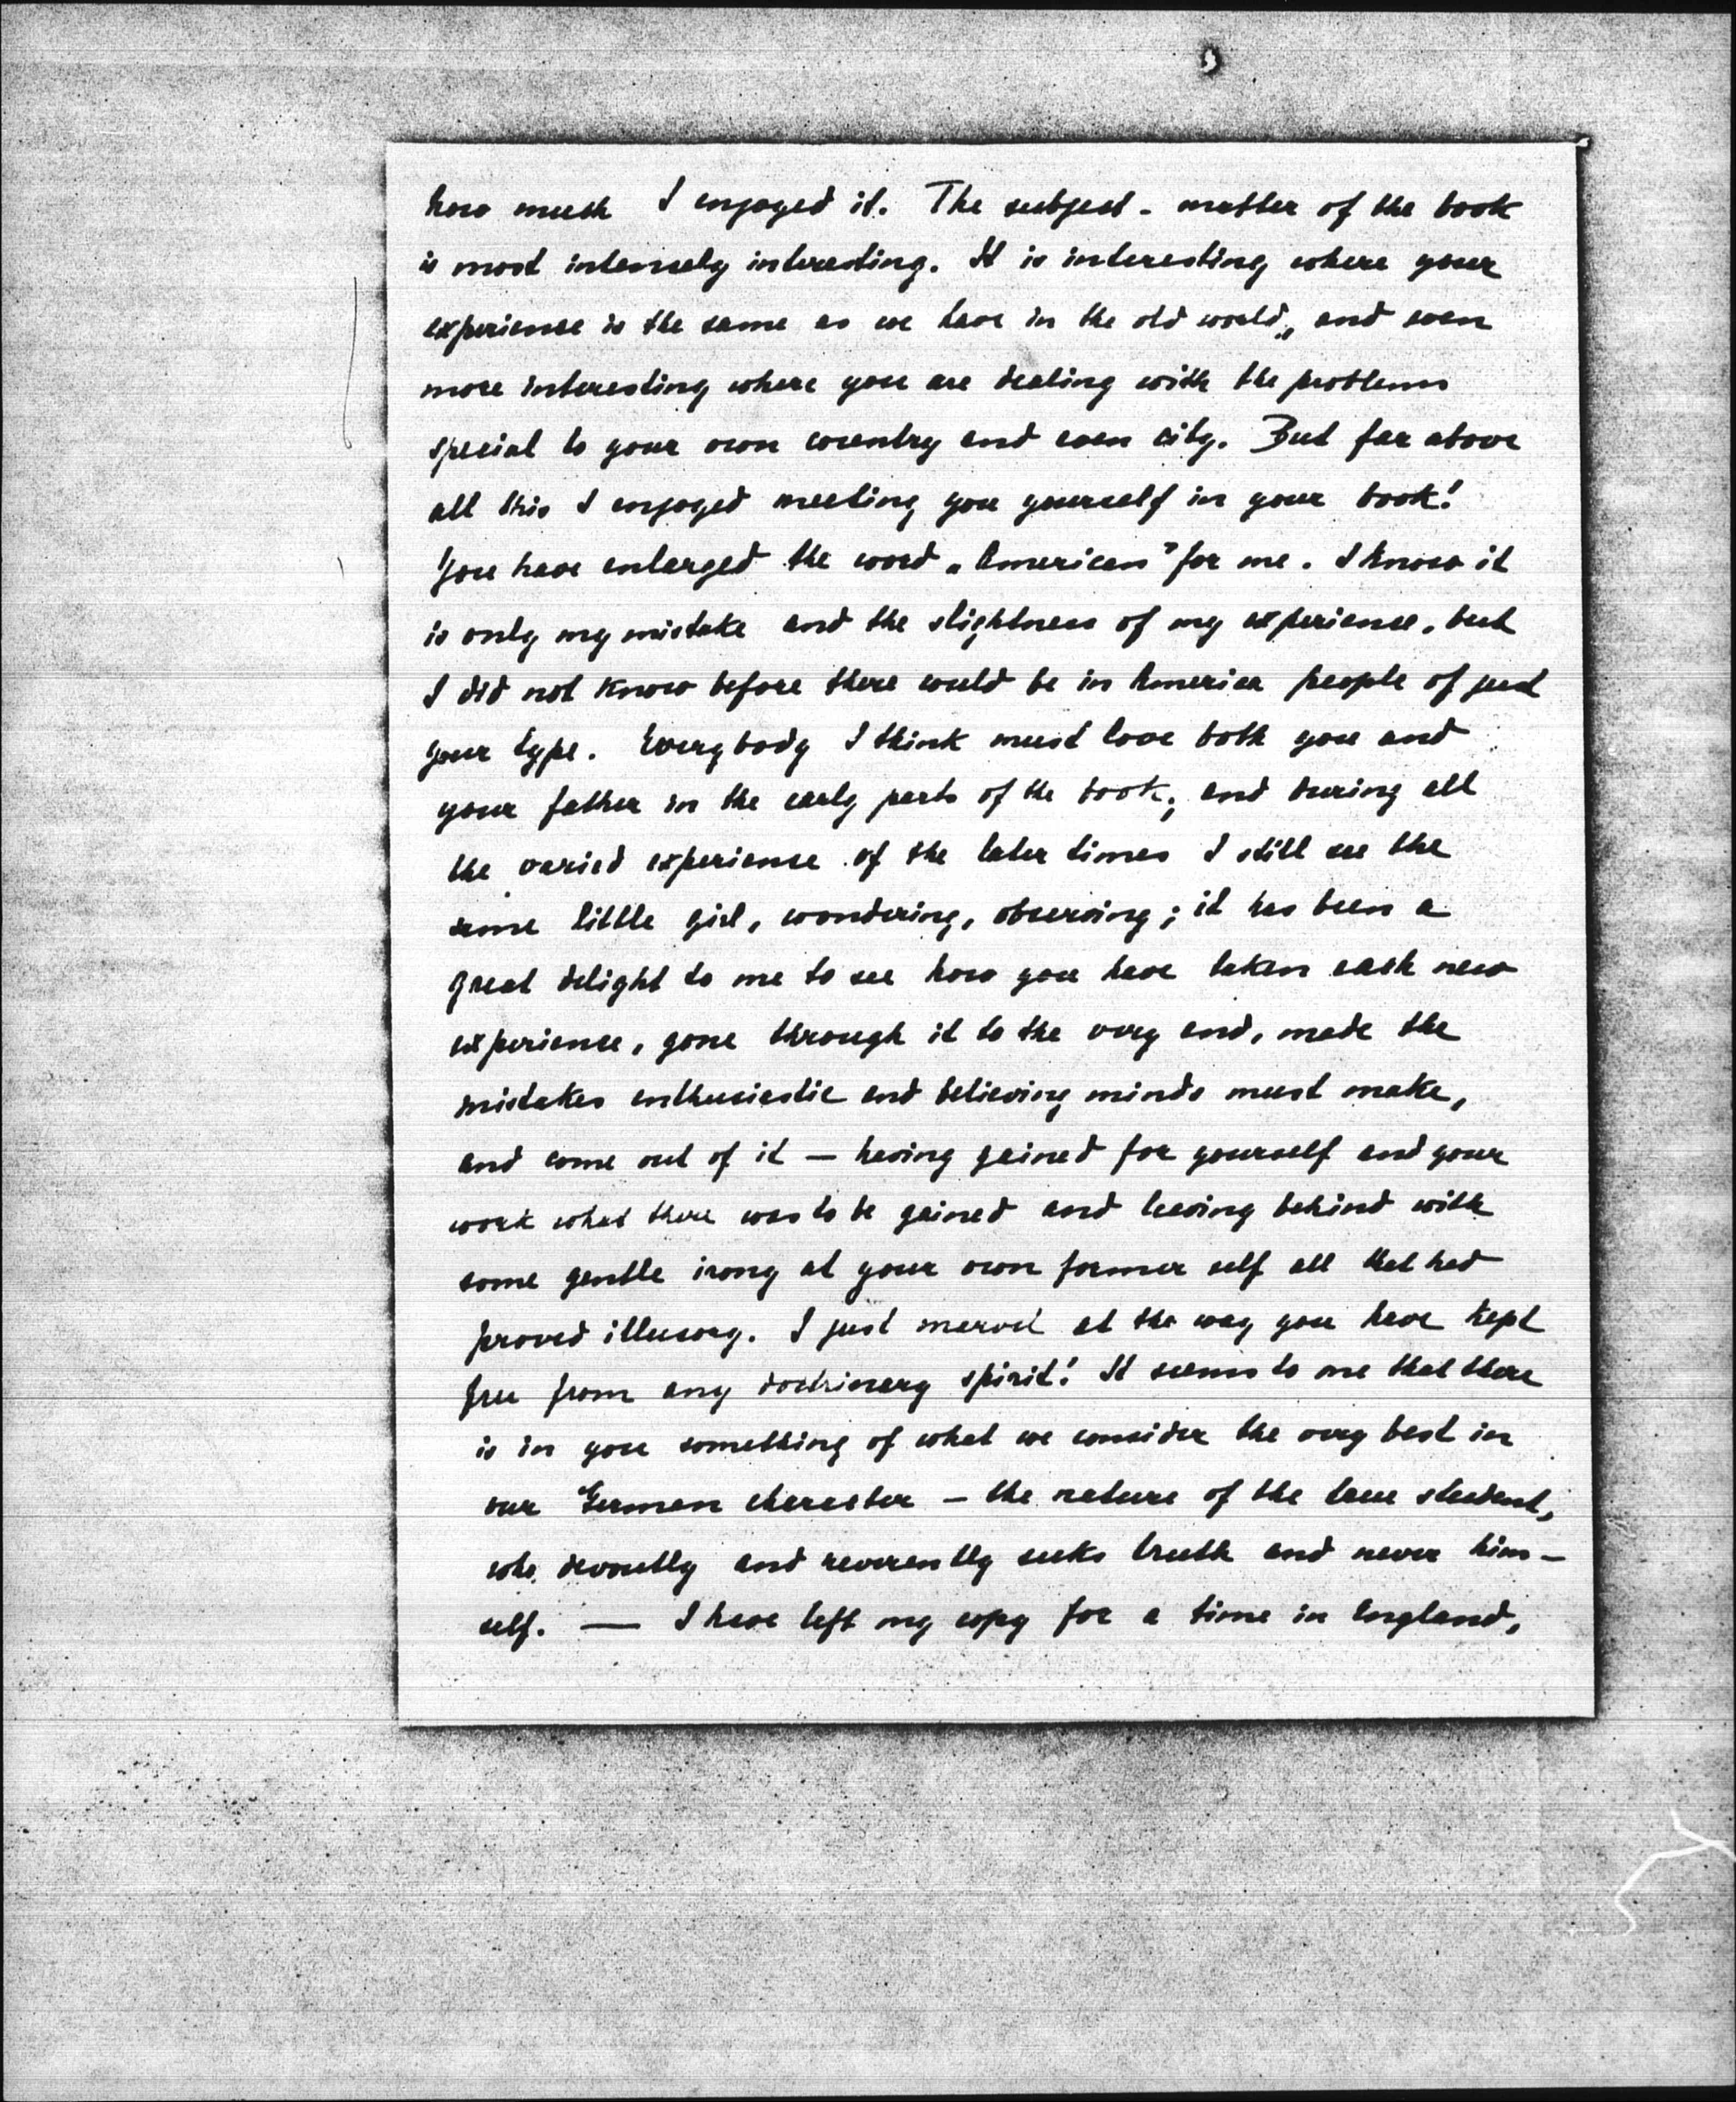 how much I enjoyed it. The subject-matter of the book
is most intensely interesting. It is interesting where your
experience is the same as we have in the old world, and even
more interesting where you are dealing with the problems
special to your own country and even city. But far above
all this I enjoyed meeting you yourself in your book!
You have enlarged the word „American” for me. I know it
is only my mistake and the slightness of my experience, but
I did not know before there could be in America people of just
your type. Everybody I think must love both you and
your father in the early parts of the book; and during all
the varied experience of the later times I still see the
same little girl, wondering, observing; it has been a
great delight to me to see how you have taken each new
experience, gone through it to the very end, made the
mistakes enthusiastic and believing minds must make,
and come out of it — having gained for yourself and your
work what there was to be gained and leaving behind with
some gentle irony at your own former self all that had
proved illusory. I just marvel at the way you have kept
free from any doctrinary spirit! It seems to me that there
is in you something of what we consider the very best in
our German character — the nature of the true student,
who devoutly and reverently seeks truth and never him-
self. — I have left my copy for a time in England,